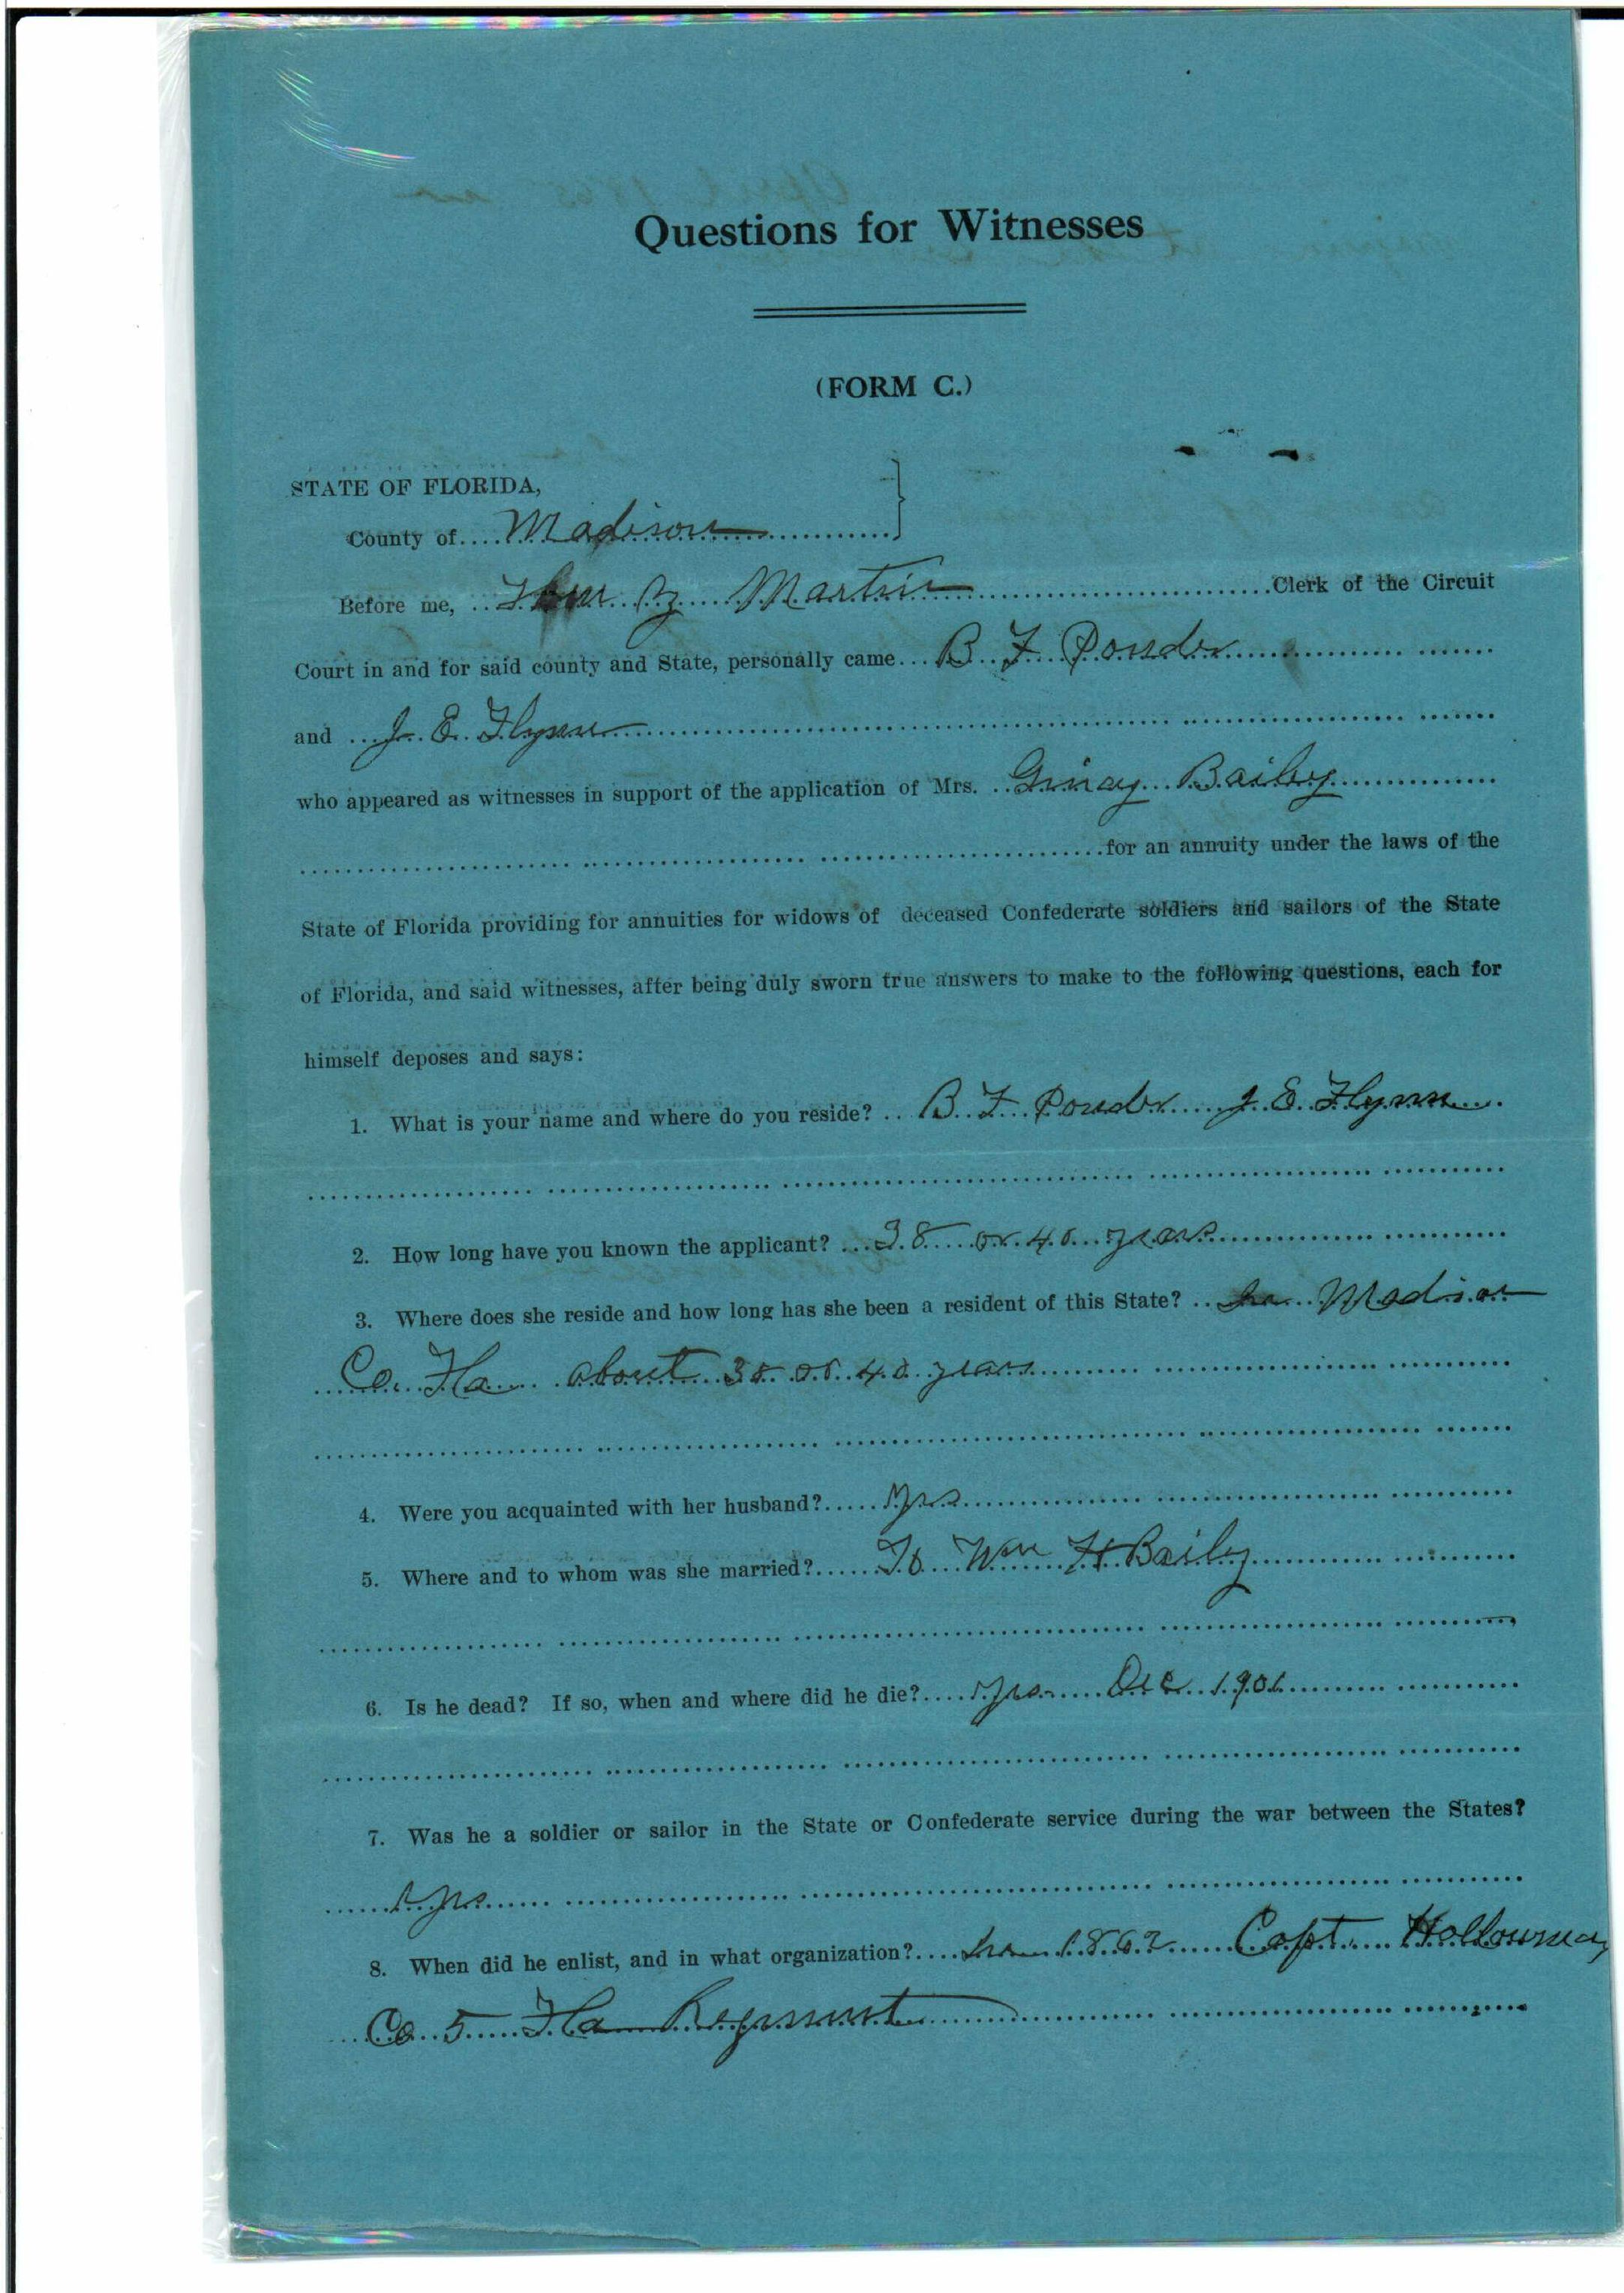 Questions for Witnesses
(FORM C.)
STATE OF FLORIDA,
County of Madison
Before me, Martin Clerk of the Circuit
Court in and for said county and State, personally came B F Ponder
and J. E. Flynn
who appeared as witnesses in support of the application of Mrs. Bailey
for an annuity under the laws of the
State of Florida providing for annuities for widows of deceased Confederate soldiers and sailors of the State
of Florida, and said witnesses, after being duly sworn true answers to make to the following questions, each for
himself deposes and says:
1. What is your name and where do you reside? B. F. Ponder J. E. Flynn
2. How long have you known the applicant? 38 or 40 years
3. Where does she reside and how long has she been a resident of this State? In Madison
Co. Fla about 38 or 40 years
4. Were you acquainted with her husband? Yes
5. Where and to whom was she married? To Wm H Baily
6. Is he dead? If so, when and where did he die? Yes Dec 1901
7. Was he a soldier or sailor in the State or Confederate service during the war between the States?
Yes
8. When did he enlist, and in what organization? In 1862 Capt. Holloway
Co 5 Fla Regiment